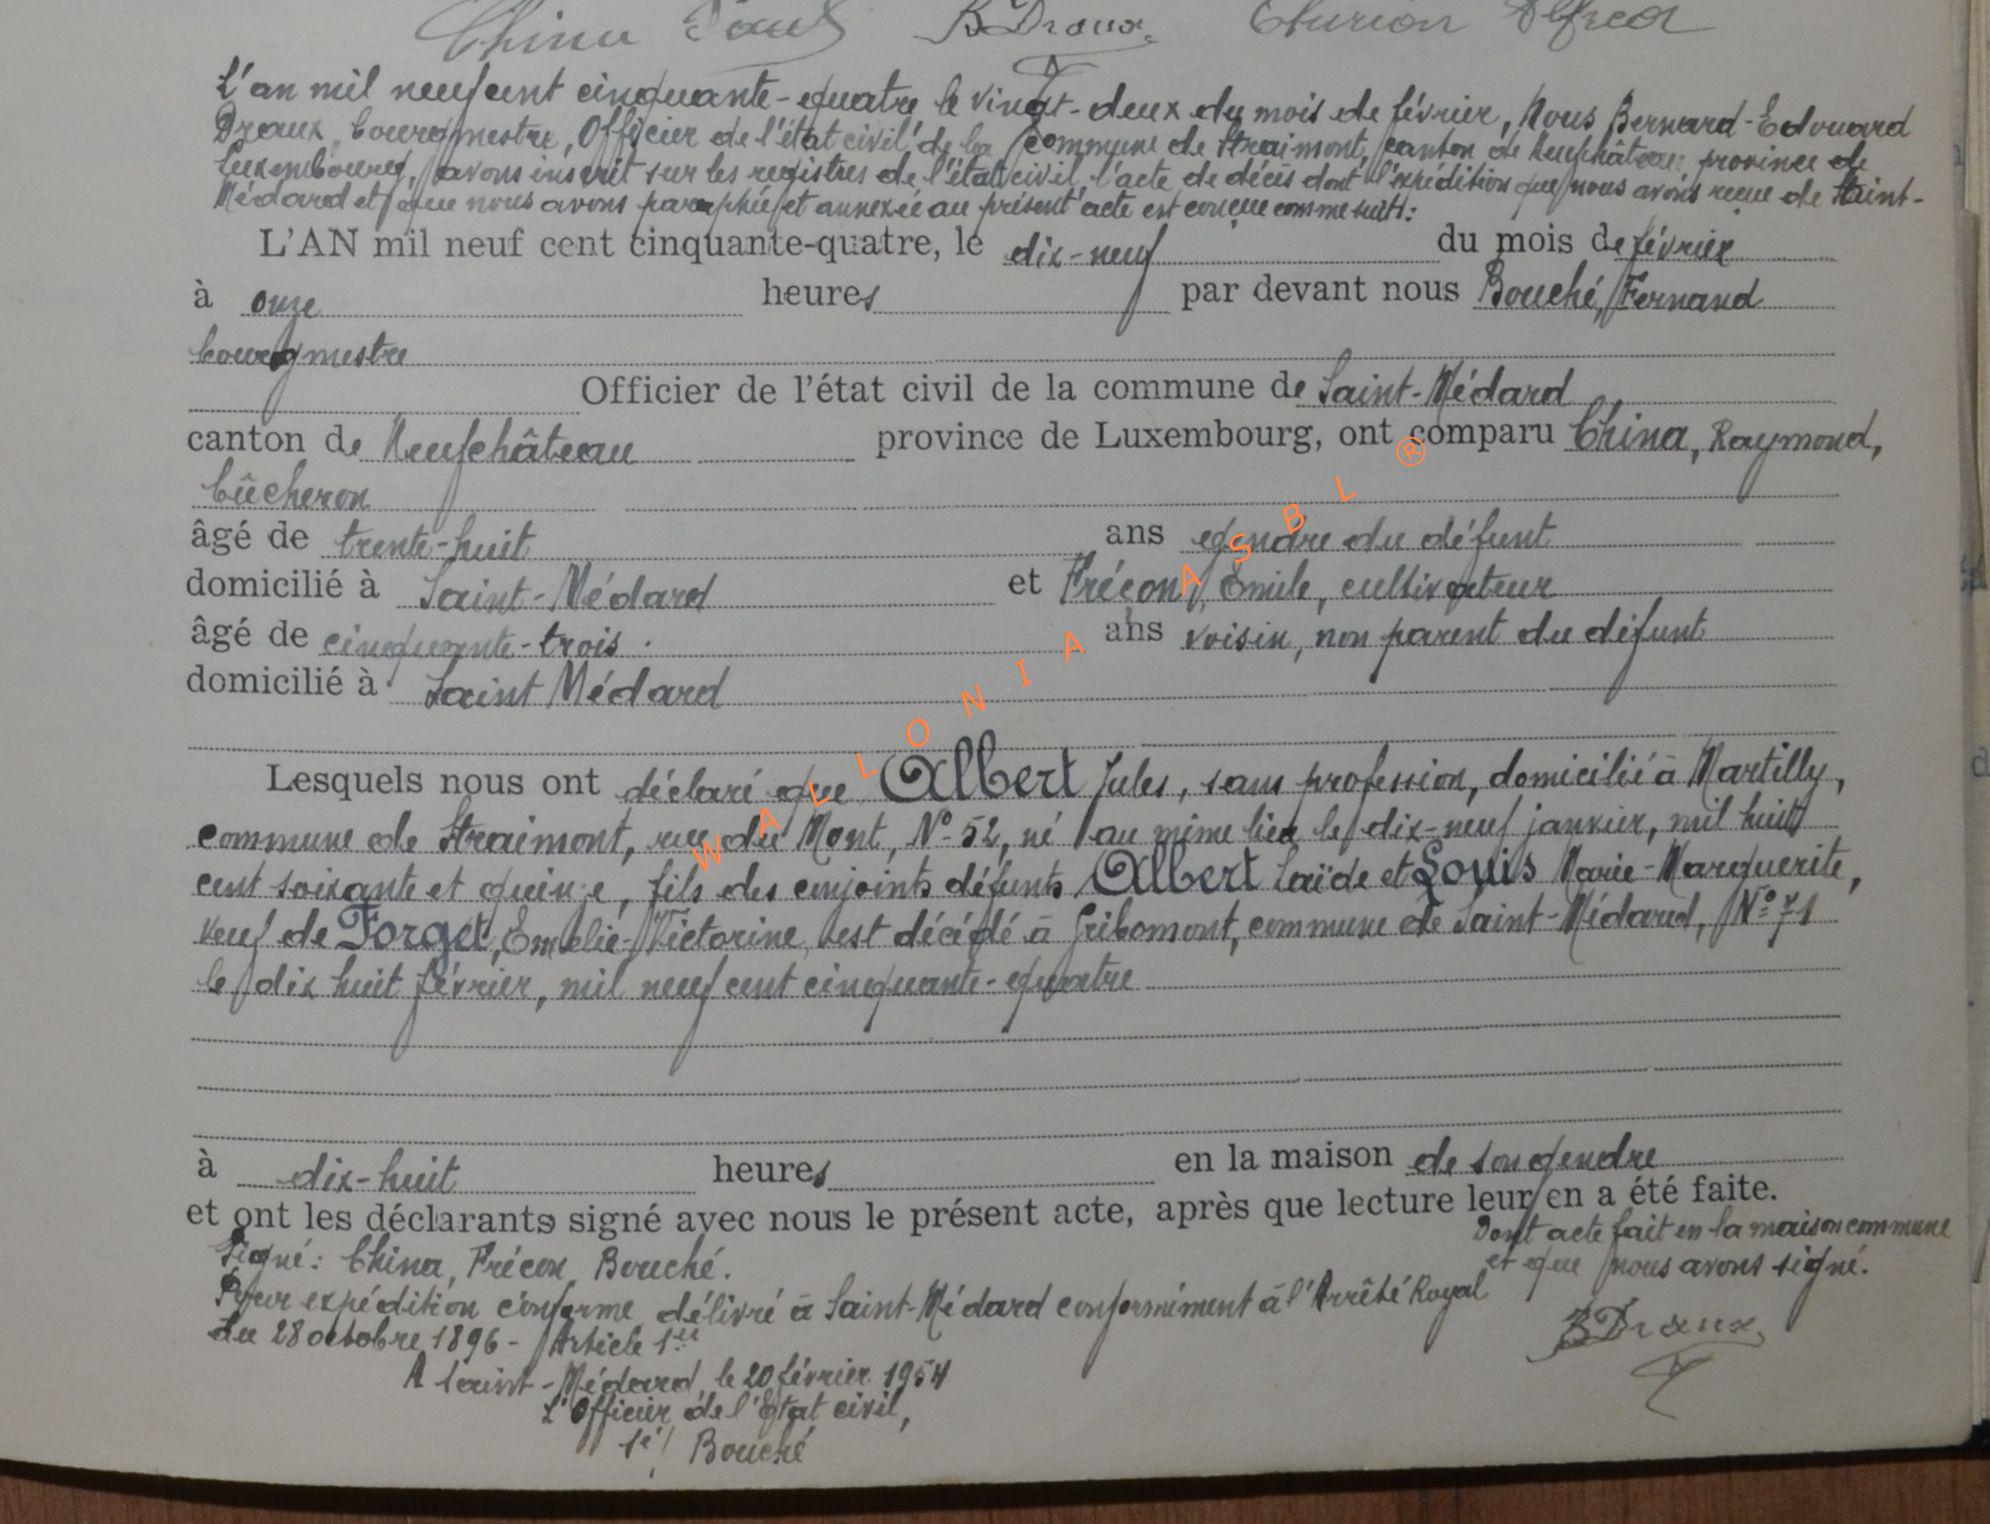 China Paul B Draux. Thurion Alfred
L'an mil neuf cent cinquante-quatre le vingt-deux du mois de février, Nous Bernard-Edouard
Draux, bourgmestre, Officier de l'état civil de la commune de Straimont, canton de Neufchâteau province de
Luxembourg, avons inscrit sur les registres de l'état civil, l'acte de décès dont l'expédition que nous avons reçue de Saint-
Médard et que nous avons paraphée et annexée au présent acte est conçue comme suit:
L'AN mil neuf cent cinquante-quatre, le dix-neuf du mois de février
à onze heures par devant nous Bouché, Fernand
bourgmestre
Officier de l'état civil de la commune de Saint-Médard
canton de Neufchâteau province de Luxembourg, ont comparu China, Raymond,
bûcheron
âgé de trente-huit ans gendre du défunt
domicilié à Saint-Médard et Frécon, Emile, cultivateur
âgé de cinquante-trois ans voisin, non parent du défunt
domicilié à Saint Médard
Lesquels nous ont déclaré que Albert Jules, sans profession, domicilié à Martilly,
commune de Straimont, rue du Mont, N° 52, né au même lieu le dix-neuf janvier, mil huit
cent soixante et quinze, fils des conjoints défunts Albert Laïde et Louis Marie-Marguerite,
veuf de Forget, Emelie-Victorine, est décédé à Gribomont, commune de Saint-Médard, N° 71
le dix huit février, mil neuf cent cinquante-quatre
à dix-huit heures en la maison de son gendre
et ont les déclarants signé avec nous le présent acte, après que lecture leur en a été faite.
Dont acte fait en la maison commune
et que nous avons signé.
Signé: China, Frécon, Bouché.
Pour expédition conforme délivré à Saint-Médard conformément à l'Arrêté Royal
du 28 octobre 1896 - Article 1er
A Saint-Médard, le 20 février 1954
L'Officier de l'Etat civil,
sé/ Bouché
B Draux.
WALLONIA ASBL ®